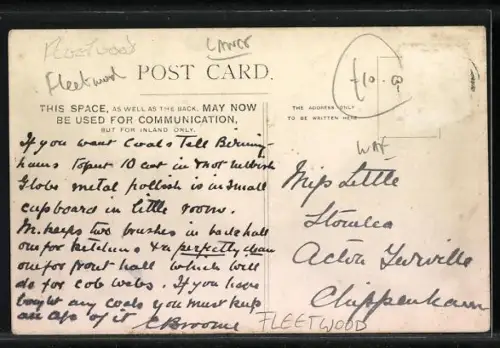 Fleetwood
Fleetwood
LANCS
POST CARD.
£10.
THIS SPACE, AS WELL AS THE BACK, MAY NOW
BE USED FOR COMMUNICATION,
BUT FOR INLAND ONLY.
THE ADDRESS ONLY
TO BE WRITTEN HERE
If you want Coals Tell Birming-
hams to put 10 cwt in & not rubbish
Globe metal pollish is in small
cupboard in little room.
M. keeps two brushes in back hall
one for kitchens & a perfectly clean
one for front hall which will
do for cob webs. If you have
bought any coals you must keep
an a/c of it C Broome
Miss Little
Acton Turville
Chippenham
FLEETWOOD